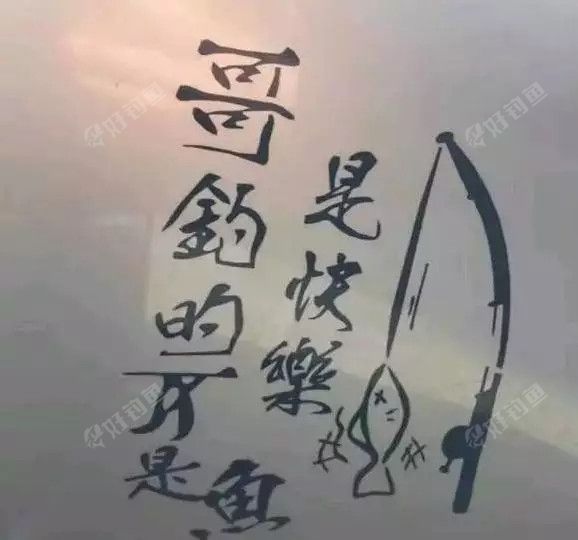 哥釣的不是魚
是快樂
好钓鱼
好钓鱼
好钓鱼
好钓鱼